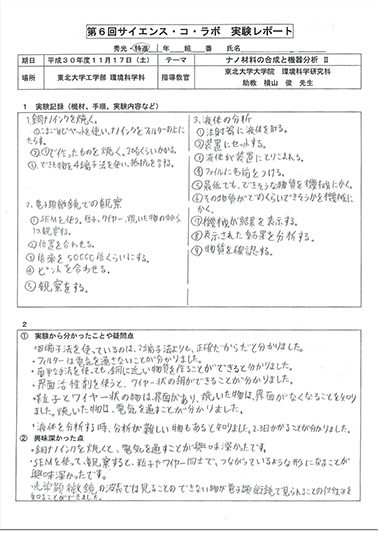 第6回サイエンス・コ・ラボ 実験レポート
秀光・特進 年 組 番 氏名
期日 平成30年11月17日（土） テーマ ナノ材料の合成と機器分析 Ⅱ
場所 東北大学工学部 環境科学科 指導教官 東北大学大学院 環境科学研究科
助教 横山 俊 先生
1 実験記録（機材、手順、実験内容など）
1.銅ナノインクを焼く。
①こまごめピペットを使い、ナノインクをフィルターの上に
たらす。
②①で作ったものを焼く。20分くらいかかる。
③できた物を4端子法を使い、抵抗を調べる。
2.電子顕微鏡での観察
①SEMを使う。粒子、ワイヤー、焼いた物の
観察する。
②位置を合わせる。
③倍率を50000倍くらいにする。
④ピントを合わせる。
⑤観察をする。
3.液体の分析
①注射器に液体を取る。
②装置にセットする。
③液体が装置にとりこまれる。
④ファイルに名前をつける。
⑤最低でも、できそうな物質を機械にかく。
⑥その物質がどのくらいできそうかを機械に
かく。
⑦機械が結果を表示する。
⑧表示された結果を分析する。
⑨物質を確認する。
2
① 実験から分かったことや疑問点
・4端子法を使っているのは、2端子法よりも、正確だからだと分かりました。
・フィルターは電気を通さないことが分かりました。
・簡単な手法を使っても、銅に近い物質を作ることができると分かりました。
・界面活性剤を使うと、ワイヤー状の銅ができることが分かりました。
・粒子とワイヤー状の物は、界面があり、焼いた物は、界面がなくなることを知り
ました。焼いた物は、電気を通すことが分かりました。
・液体を分析する時、分析が難しい物もあると知りました。2、3日かかることが分かりました。
② 興味深かった点
・銅ナノインクを焼くと、電気を通すことが興味深かったです。
・SEMを使って、観察すると、粒子やワイヤー同士で、つながっているような形になることが
興味深かったです。
・光学顕微鏡の波長では見ることのできない物が電子顕微鏡で見られることの
知ることができました。